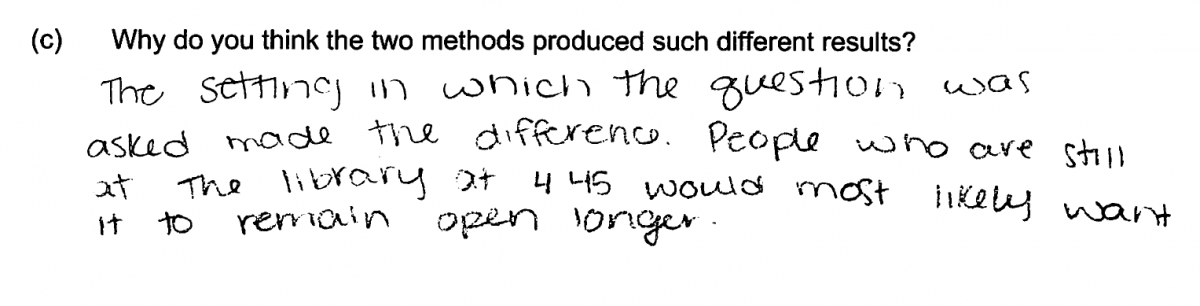 (c) Why do you think the two methods produced such different results?
The setting in which the question was
asked made the difference. People who are still
at The library at 4 45 would most likely want
it to remain open longer.